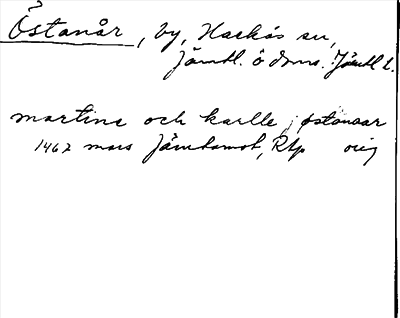 Östanår, by, Hackås sn,
Jämtl. ö doms. Jämtl l.
martine och karlle j østanaar
1467 mars Jämtamot, Rap orig